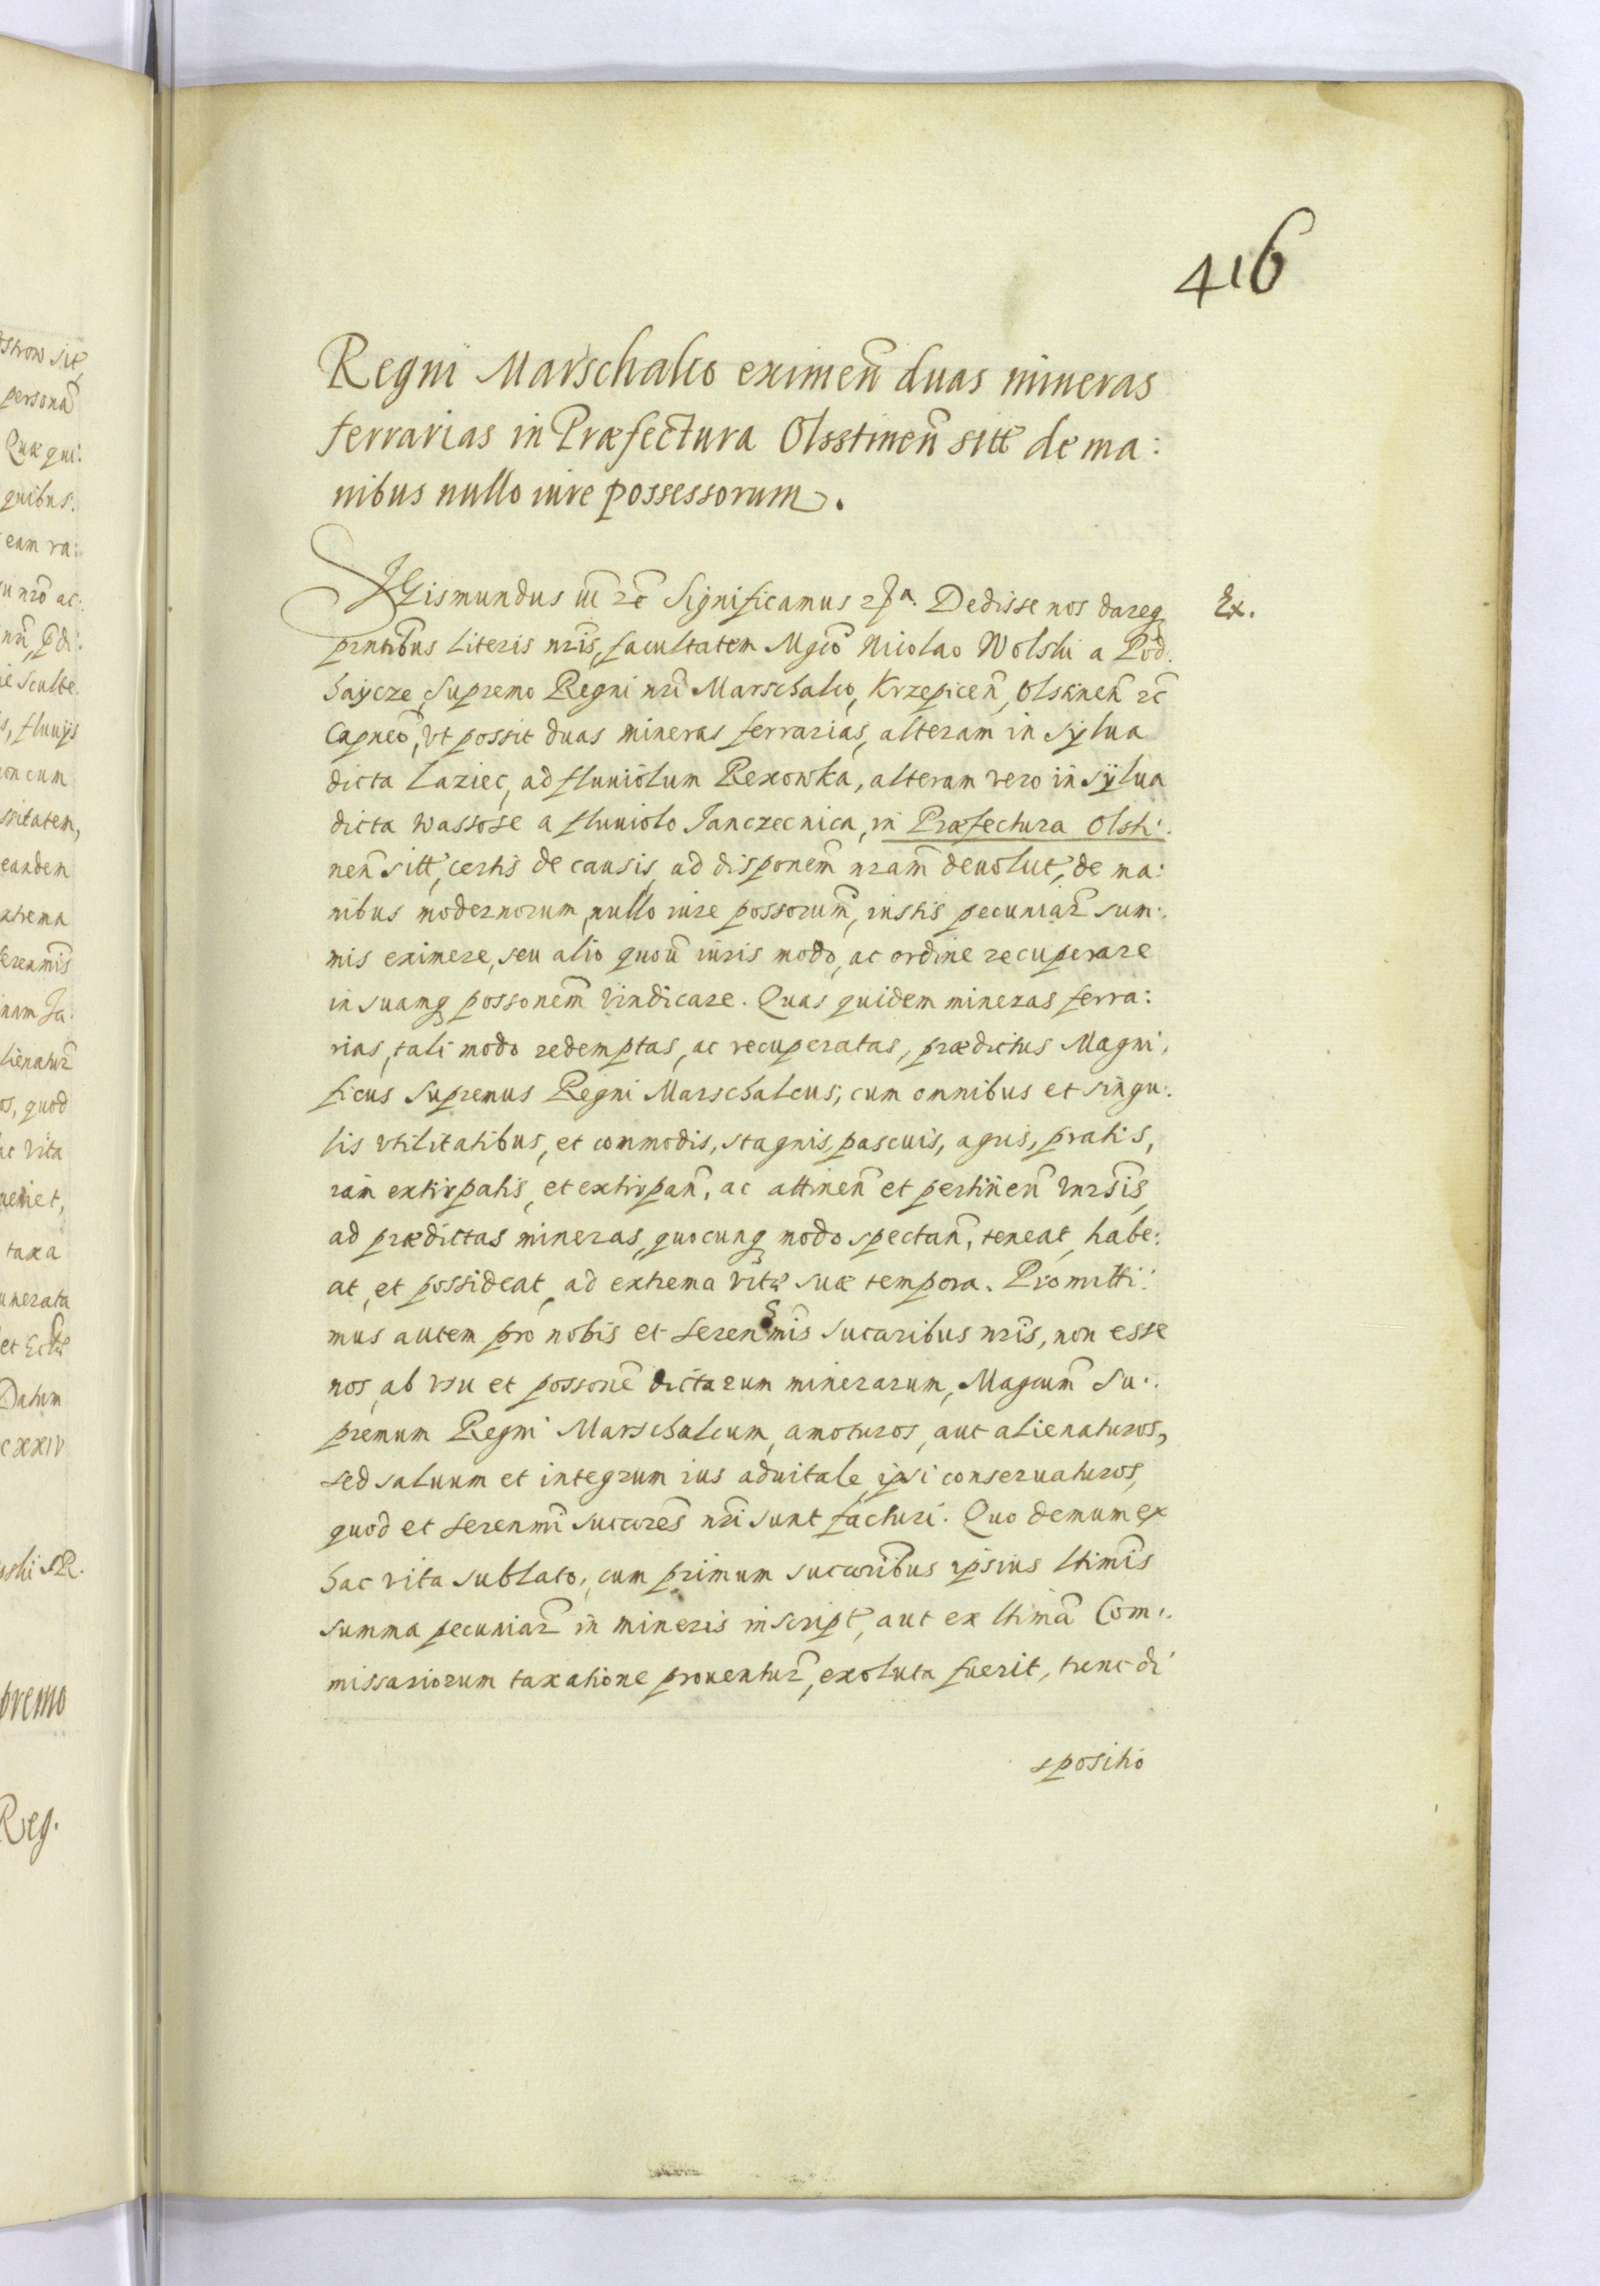 416
Regni Marschalco eximen̄ duas mineras
ferrarias in Præfectura Olsstinen̄ sitt̄ de ma:
nibus nullo iure possessorum.
Sigismundus iii etc̄ Significamus Dedisse nos dareq́
Ex.
pntibus literis nr̄is, facultatem Mgc̄o Nicolao Wolski a Pod:
hajcze, Supremo Regni nr̄i Marschalco, Krzepicen̄, Olstinen̄ etc̄
Capneo, vt possit duas mineras ferrarias, alteram in sylua
dicta Laziec, ad fluuiolum Rexowka, alteram vero in sylua
dicta Wassose a fluuiolo Janczecnica, in Præfectura Olsti:
nen̄ sitt̄, certis de causis, ad disponem̄ nr̄am deuolut̄, de ma:
nibus modernorum, nullo iure possorum̄, iustis pecuniar̄ sum:
mis eximere, seu alio quouis̄ iuris modo, ac ordine recuperare
in suamq́ possonem̄ vindicare. Quas quidem mineras ferra:
rias, tali modo redemptas, ac recuperatas, prædictus Magni:
ficus Supremus Regni Marschalcus, cum omnibus et singu:
lis vtilitatibus, et commodis, stagnis, pascuis, agris, pratis,
iam extirpatis, et extirpan̄, ac attinen̄ et pertinen̄ vnr̄sis,
ad prædictas mineras, quocunq́ modo spectan̄, teneat, habe:
at, et possideat, ad extrema vitæ suæ tempora. Promitti:
mus autem pro nobis et Serenmis̄ sucaribus nr̄is, non esse
nos, ab vsu et possone̅ dictarum minerarum, Magcum̄ Su:
premum Regni Marschalcum, amoturos, aut alienaturos,
sed saluum et integrum ius aduitale, ipsi conseruaturos,
quod et Serenmi̅ succores̄ nr̄i sunt facturi. Quo demum ex
hac vita sublato, cum primum succoribus̄ ipsius ltimis̄
summa pecuniar̄ in mineris inscript̄, aut ex ltima̅ Com:
missariorum taxatione prouentur̄, exoluta fuerit, tunc di
spositio